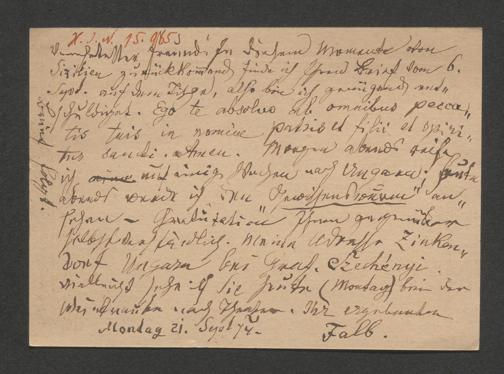 H. I. N. 15.985
Verehrtester Freund! In diesem Momente von
Sizilien zurückkommend finde ich Ihren Brief vom 6.
Sept. auf dem Tische, also bin ich genügend ent-
schuldigt. Ego te absolvo ab omnibus pecca-
tis tuis in nomine patris et filii et spiri-
tus sancti. Amen. Morgen abends reise
ich auf einige Wochen nach Ungarn. Heute
abends werde ich den "Gewissenswurm" an-
sehen – Gratulation Ihnen gegenüber
selbstverständlich. Meine Adresse Zinken-
dorf Ungarn bei Graf. Szechényi.
Vielleicht sehe ich Sie heute (Montag) bei der
nach Theater. Ihr ergebenster
Montag 21. Sept 74.-
Falb.